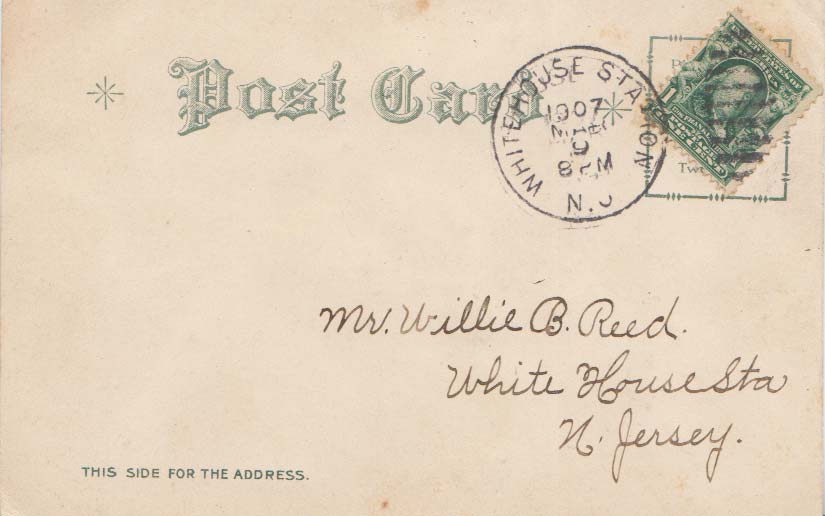 Post Card
WHITEHOUSE STATION
1907
MAR
9
8 PM
N.J
Two
Mr. Willie B. Reed.
White House Sta
N. Jersey.
THIS SIDE FOR THE ADDRESS.